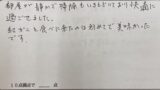 部屋が静かで掃除もいきとどいており快適に
過ごせました。
紅ガニを食べに来たのは初めてで美味かった
です。
10点満点で　　点